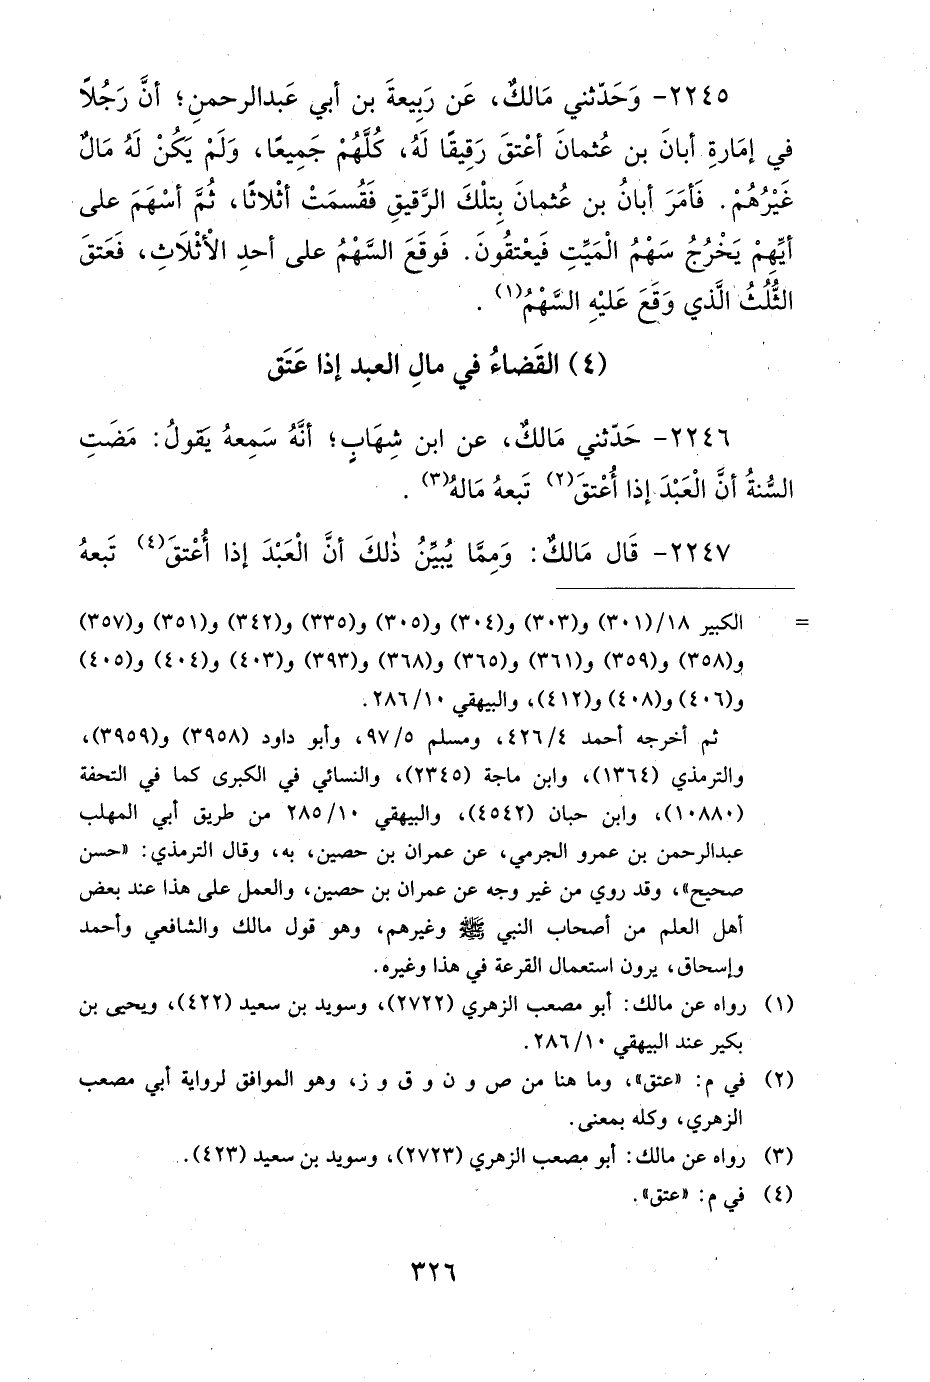 ٢٢٤٥- وَحَدّثني مَالكٌ، عَن رَبِيعةَ بن أبي عَبدالرحمنِ؛ أنَّ رَجُلاً
في إمَارةِ أبانَ بن عُثمانَ أعْتقَ رَقيقًا لَهُ، كُلَّهُمْ جَميعًا، وَلَمْ يَكُنْ لَهُ مَالٌ
غَيْرُهُمْ. فَأمَرَ أبانُ بن عُثمانَ بِتلْكَ الرَّقيقِ فَقُسمَتْ أثْلاثًا، ثُمَّ أسْهَمَ على
أيِّهِمْ يَخْرُجُ سَهْمُ الْمَيِّتِ فَيعْتقُونَ. فَوقَعَ السَّهْمُ على أحدِ الأثْلَاثِ، فَعَتقَ
الثُّلُثُ الَّذي وَقَعَ عَليْهِ السَّهْمُ(١).
(٤) القَضاءُ في مالِ العبد إذا عَتَق
٢٢٤٦- حَدّثني مَالكٌ، عن ابن شِهَابٍ؛ أنَّهُ سَمِعهُ يَقولُ: مَضَتِ
السُّنةُ أنَّ الْعَبْدَ إذا أُعْتقَ(٢) تَبعهُ مَالهُ(٣).
٢٢٤٧- قَال مَالكٌ: وَمِمَّا يُبيِّنُ ذٰلكَ أنَّ الْعَبْدَ إذا أُعْتقَ(٤) تَبعهُ
= الكبير ١٨/(٣٠١) و(٣٠٣) و(٣٠٤) و(٣٠٥) و(٣٣٥) و(٣٤٢) و(٣٥١) و(٣٥٧)
و(٣٥٨) و(٣٥٩) و(٣٦١) و(٣٦٥) و(٣٦٨) و(٣٩٣) و(٤٠٣) و(٤٠٤) و(٤٠٥)
و(٤٠٦) و(٤٠٨) و(٤١٢)، والبيهقي ١٠/ ٢٨٦.
ثم أخرجه أحمد ٤/ ٤٢٦، ومسلم ٥/ ٩٧، وأبو داود (٣٩٥٨) و(٣٩٥٩)،
والترمذي (١٣٦٤)، وابن ماجة (٢٣٤٥)، والنسائي في الكبرى كما في التحفة
(١٠٨٨٠)، وابن حبان (٤٥٤٢)، والبيهقي ١٠/ ٢٨٥ من طريق أبي المهلب
عبدالرحمن بن عمرو الجرمي، عن عمران بن حصين، به، وقال الترمذي: «حسن
صحيح»، وقد روي من غير وجه عن عمران بن حصين، والعمل على هذا عند بعض
أهل العلم من أصحاب النبي ﷺ وغيرهم، وهو قول مالك والشافعي وأحمد
وإسحاق، يرون استعمال القرعة في هذا وغيره.
(١) رواه عن مالك: أبو مصعب الزهري (٢٧٢٢)، وسويد بن سعيد (٤٢٢)، ويحيى بن
بكير عند البيهقي ١٠/ ٢٨٦.
(٢) في م: «عتق»، وما هنا من ص و ن و ق و ز، وهو الموافق لرواية أبي مصعب
الزهري، وكله بمعنى.
(٣) رواه عن مالك: أبو مصعب الزهري (٢٧٢٣)، وسويد بن سعيد (٤٢٣).
(٤) في م: «عتق».
٣٢٦